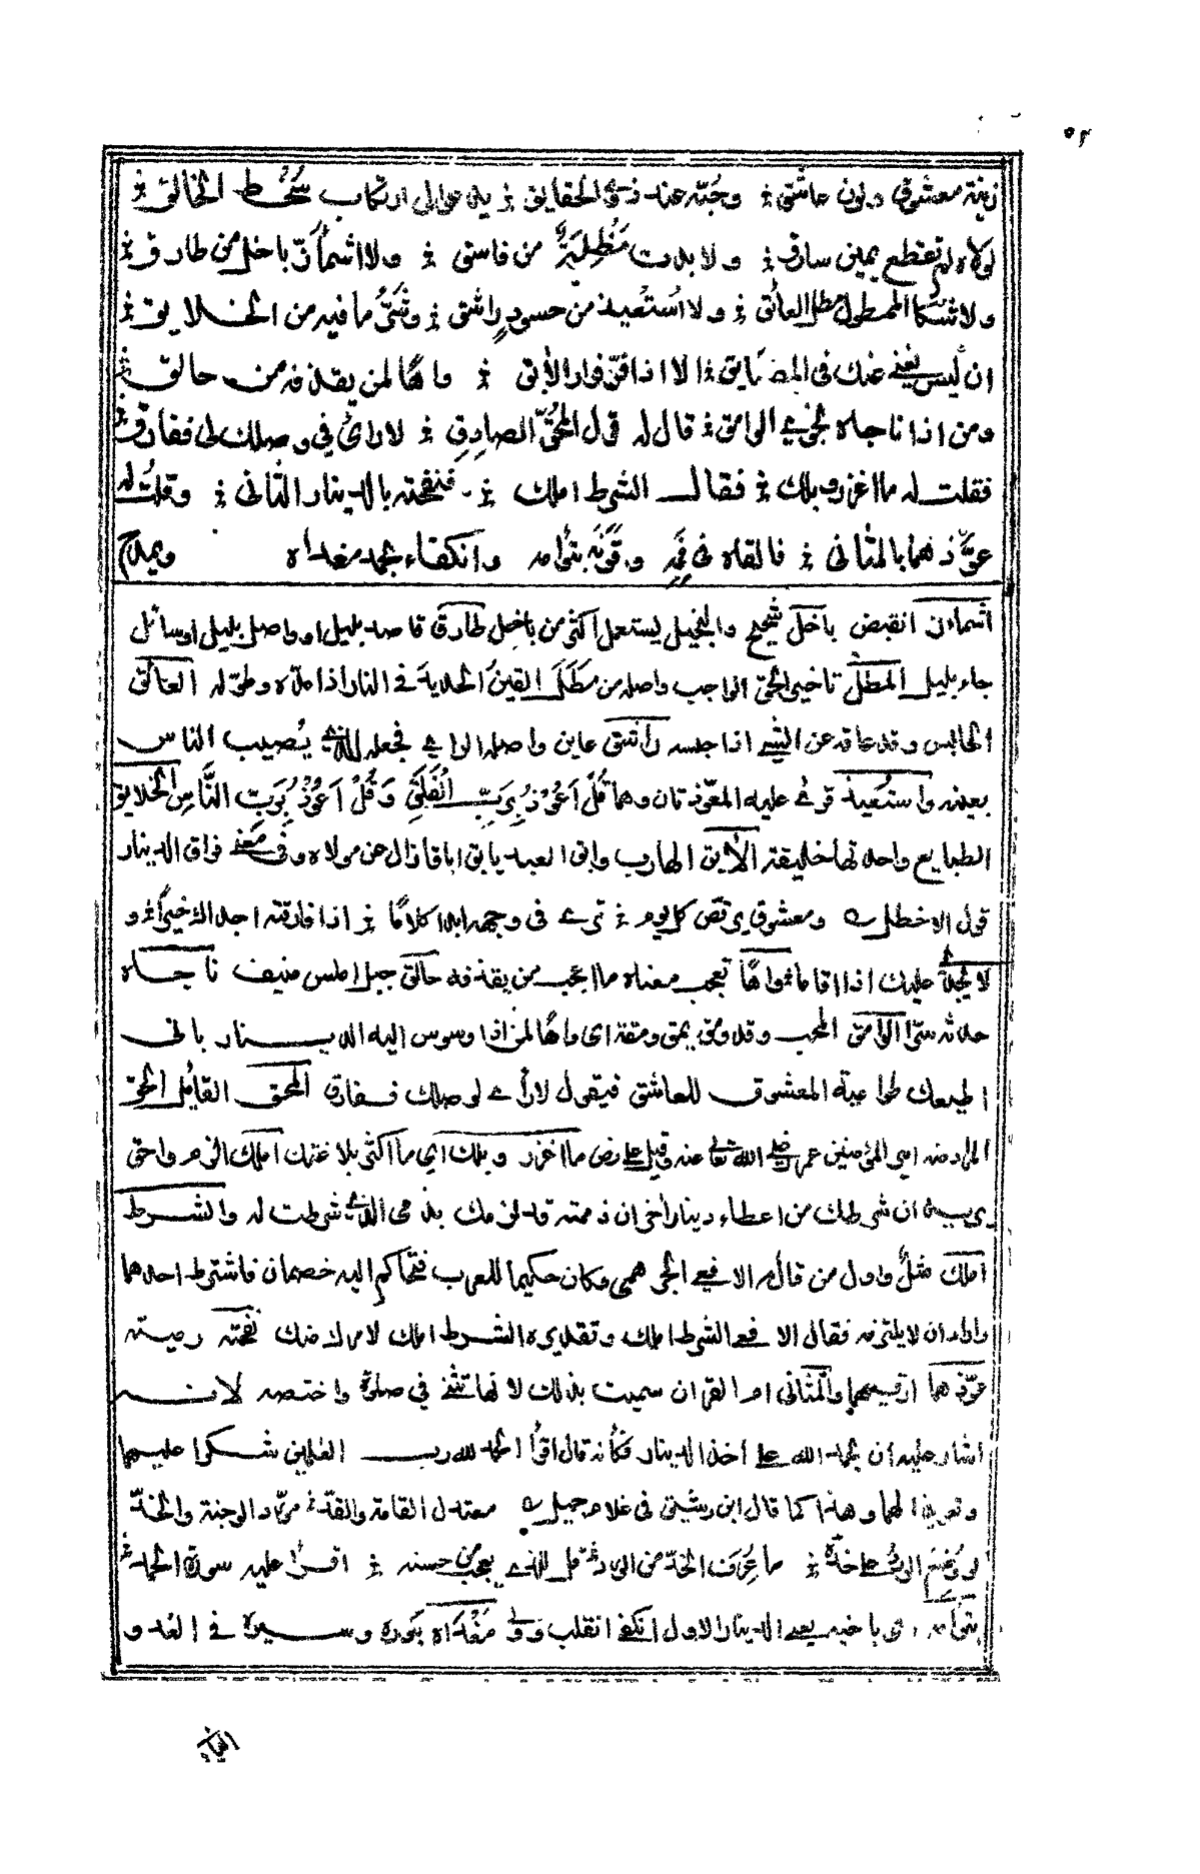 ٥٢
زينة معشوق ولون عاشق ۞ وحبه عند ذوي الحقايق ۞ يدعو الى ارتكاب سخط الخالق ۞
لولاه لم تقطع يمين سارق ۞ ولا بدت مظلمة من فاسق ۞ ولا اشمأز باخل من طارق ۞
ولا شكا الممطول مطل العائق ۞ ولا استعيذ من حسود راشق ۞ وشر ما فيه من الخلايق ۞
ان ليس يغني عنك في المضايق ۞ الا اذا فر فرار الآبق ۞ واها لمن يقذفه من حالق ۞
ومن اذا ناجاه نجوى الوامق ۞ قال له قول المحق الصادق ۞ لا راي في وصلك لي ففارق ۞
فقلت له ما اغزر وبلك ۞ فقال الشرط املك ۞ فنفحته بالدينار الثاني ۞ وقلت له
عوذهما بالمثاني ۞ فالقاه في فمه وقرنه بتوأمه وانكفاء يحمد مغداه ويمدح
اشمأز انقبض باخل شحيح والبخيل يستعمل اكثر من باخل طارق قاصد بليل او واصل بليل او سائل
جاء بليل المطل تاخير الحق الواجب واصله من مطل القين الحديدة في النار اذا مده وطوله العائق
الحابس وقد عاقه عن الشيء اذا حبسه راشق عاين واصله الرامي فجعله للذي يصيب الناس
بعينه واستعيذ قرئ عليه المعوذتان وهما قل اعوذ برب الفلق وقل اعوذ برب الناس الخلايق
الطبايع واحدتها خليقة الآبق الهارب وابق العبد يابق اباقا زال عن مولاه وفي معنى فراق الدينار
قول الاخطل ومعشوق يرقص كل يوم ۞ ترى في وجهه ابدا كلاما ۞ اذا فارقته اجداك خيرا ۞ و
لا يجدي عليك اذا اقاما واها تعجب معناه ما اعجب من يقذفه حالق جبل املس منيف ناجاه
حدثه سرا الوامق المحب وقد ومق يمق ومقة اي واها لمن اذا وسوس اليه الدينار باني
اطيعك طواعية المعشوق للعاشق فيقول لا راي لي وصلك ففارق المحق القائل الحق
المراد منه امير المؤمنين عمر رضي الله تعالى عنه وقيل علي رض ما اغزر وبلك اي ما اكثر بلاغتك املك الزم واحق
يريد ان شرطك من اعطاء دينار اخر ان ذممته قد لزمك بذمي الذي شرطت له والشرط
املك مثل واول من قاله الافعى الجرهمي وكان حكيما للعرب فتحاكم اليه خصمان فاشترط احدهما
واراد ان لا يلتزمه فقال الافعى الشرط املك وتقديره الشرط املك لامرك منك نفحته رميته
عوذهما ارقيهما والمثاني ام القران سميت بذلك لانها تثنى في صلوة واختصه لانه
اشار عليه ان يحمد الله على اخذ الدينار فكأنه قال اقرأ الحمد لله رب العلمين شكرا عليهما
وتعويذا لهما وهذا كما قال ابن رشيق في غلام جميل معتدل القامة والقد ۞ مورد الوجنة والخد
لو وضع الورد على خده ۞ ما عرف الخد من الورد ۞ قل للذي يعجب من حسنه ۞ اقرأ عليه سورة الحمد ۞
بتوأمه اي باخيه يعني الدينار الاول انكفى انقلب وولى مغداه بكوره وسيره في الغدو